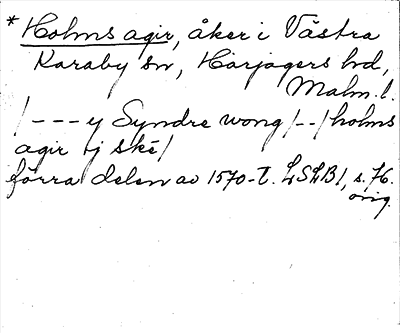 * Holms agir, åker i Västra
Karaby sn, Harjagers hd,
Malm. l.
/ - - - y Syndre wong / - - / holms
agir ij ske /
förra delen av 1570-t. LSLB 1, s. 76.
orig.